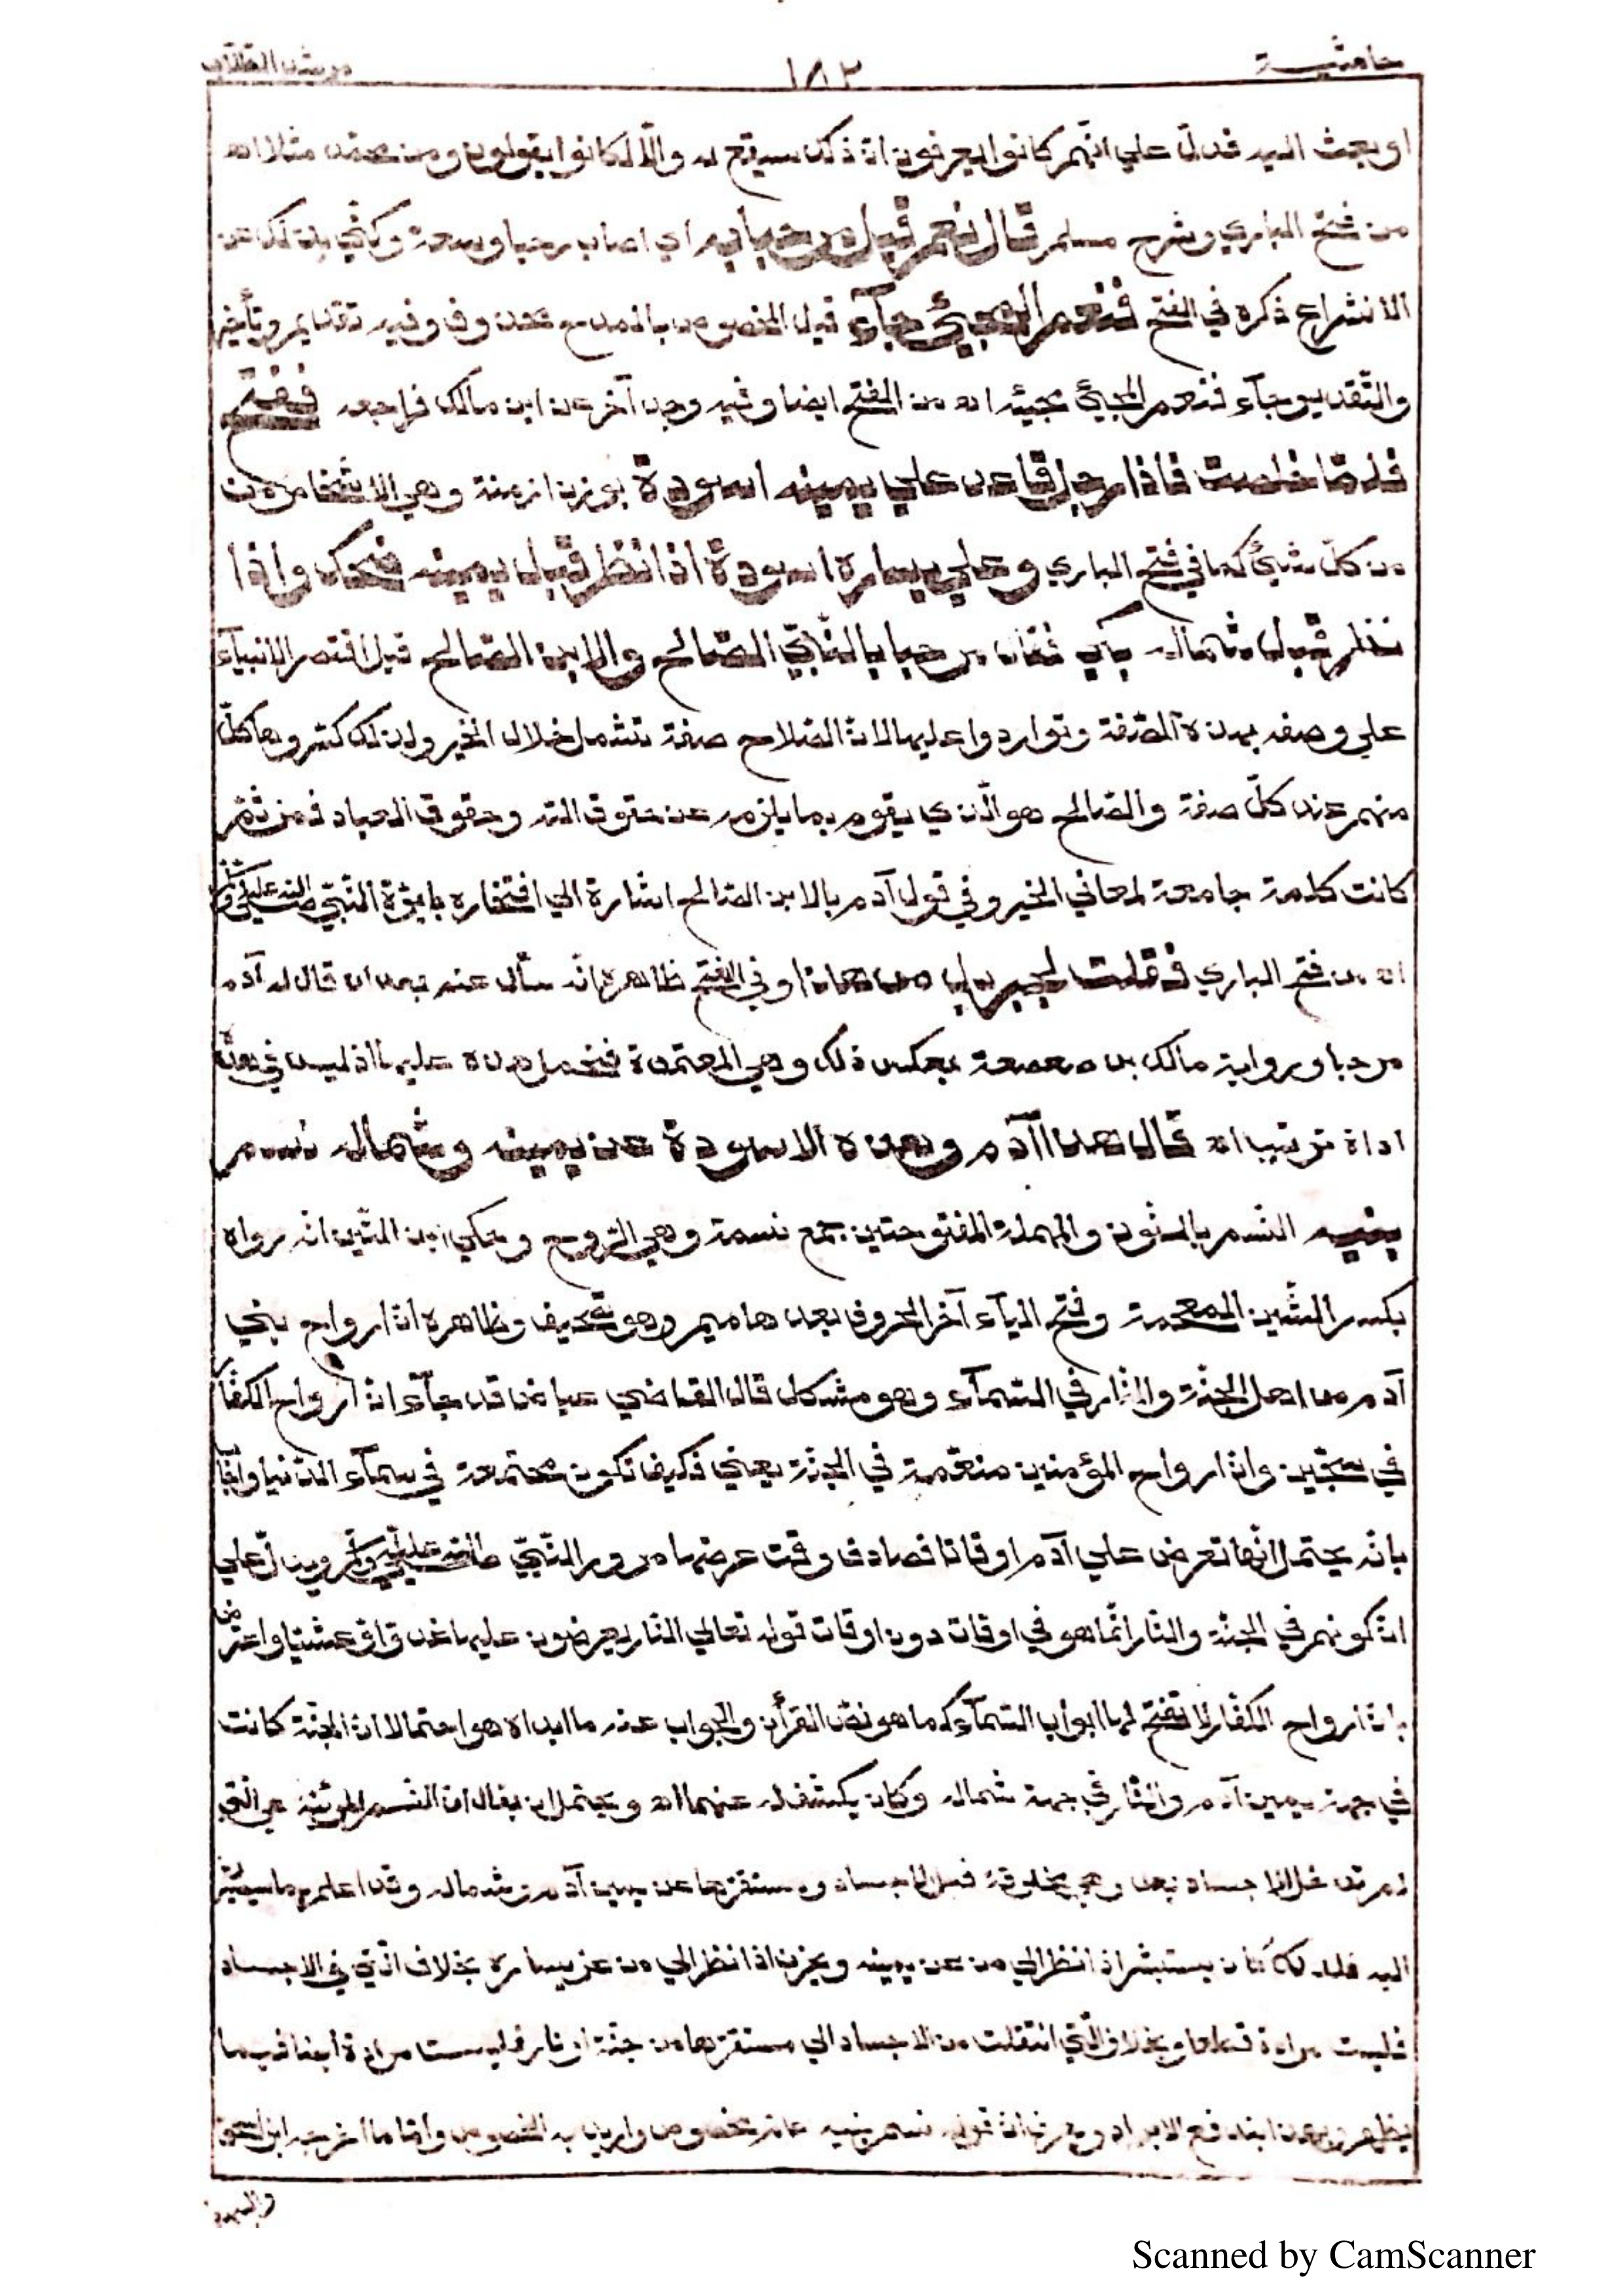 حاشية ١٨٢ مرشد الطلاب
او بعث اليه فدلّ علي انّهم كانوا يعرفون انّ ذلك سيقع له والّا لكانوا يقولون ومن محمّد مثلا اه
من فتح الباري وشرح مسلم قال نعم قيل مرحبا به اي اصاب رحبا وسعة وكنّي بذلك عن
الانشراح ذكره في الفتح فنعم المجيئ جآء قيل المخصوص بالمدح محذوف وفيه تقديم وتأخير
والتّقدير جآء فنعم المجيئ مجيئه اه من الفتح ايضا وفيه وجه آخر عن ابن مالك فراجعه ففتح
فلمّا خلصت فاذا رجل قاعد علي يمينه اسودة بوزن ازمنة وهي الاشخاص من
من كلّ شيئ كما في فتح الباري وعلي يساره اسودة اذا نظر قبل يمينه ضحك واذا
نظر قبل شماله بكي فقال مرحبا بالنّبيّ الصّالح والابن الصّالح قيل اقتصر الانبيآء
علي وصفه بهذه الصّفة وتواردوا عليها لانّ الصّلاح صفة تشمل خلال الخير ولذلك كررها كلّ
منهم عند كلّ صفة والصّالح هو الّذي يقوم بما يلزمه عن حقوق الله وحقوق العباد فمن ثمّ
كانت كلمة جامعة لمعاني الخير وفي قول آدم بالابن الصّالح اشارة الي افتخاره بابوّة النّبيّ صلّي الله عليه وسلّم
اه من فتح الباري فقلت لجبريل من هذا وفي الفتح ظاهره انّه سأل عنه بعد ان قال له آدم
مرحبا ورواية مالك بن صعصعة بعكس ذلك وهي المعتمدة فتحمل هذه عليها اذ ليس في هذه
اداة ترتيب اه قال هذا آدم وهذه الاسودة عن يمينه وشماله نسم
بنيه النّسم بالنّون والمهملة المفتوحتين جمع نسمة وهي الرّوح وحكي ابن التّين انّه رواه
بكسر الشّين المعجمة وفتح اليآء آخر الحروف بعدها ميم وهو تصحيف وظاهره انّ ارواح بني
آدم من اهل الجنّة والنّار في السّمآء وهو مشكل قال القاضي عياض قد جآء انّ ارواح الكفّار
في سجّين وانّ ارواح المؤمنين منعّمة في الجنّة يعني فكيف تكون مجتمعة في سمآء الدّنيا واجاب
بانّه يحتمل انّها تعرض علي آدم اوقاتا فصادف وقت عرضها مرور النّبيّ صلّي الله عليه وسلّم ويدلّ علي
انّ كونهم في الجنّة والنّار انّما هو في اوقات دون اوقات قوله تعالي النّار يعرضون عليها غدوّا وعشيّا واعترض
بانّ ارواح الكفّار لا تفتح لها ابواب السّمآء كما هو نصّ القرأن والجواب عنه ما ابداه هو احتمالا انّ الجنّة كانت
في جهة يمين آدم والنّار في جهة شماله وكان يكشف له عنهما اه ويحتمل ان يقال انّ النّسم المرئيّة هي الّتي
لم تدخل الاجساد بعد وهي مخلوقة قبل الاجساد ومستقرّها عن يمين آدم وشماله وقد اعلم بما سيصير
اليه فلذلك كان يستبشر اذا نظر الي من عن يمينه ويحزن اذا نظر الي من عن يساره بخلاف الّتي في الاجساد
فليست مرادة قطعا وبخلاف الّتي انتقلت من الاجساد الي مستقرّها من جنّة او نار فليست مرادة ايضا فيما
يظهر وبهذا يندفع الايراد ويعرف انّ قوله نسم بنيه عامّ مخصوص او اريد به الخصوص وامّا ما اخرجه ابن اسحق
والبيهقي
Scanned by CamScanner